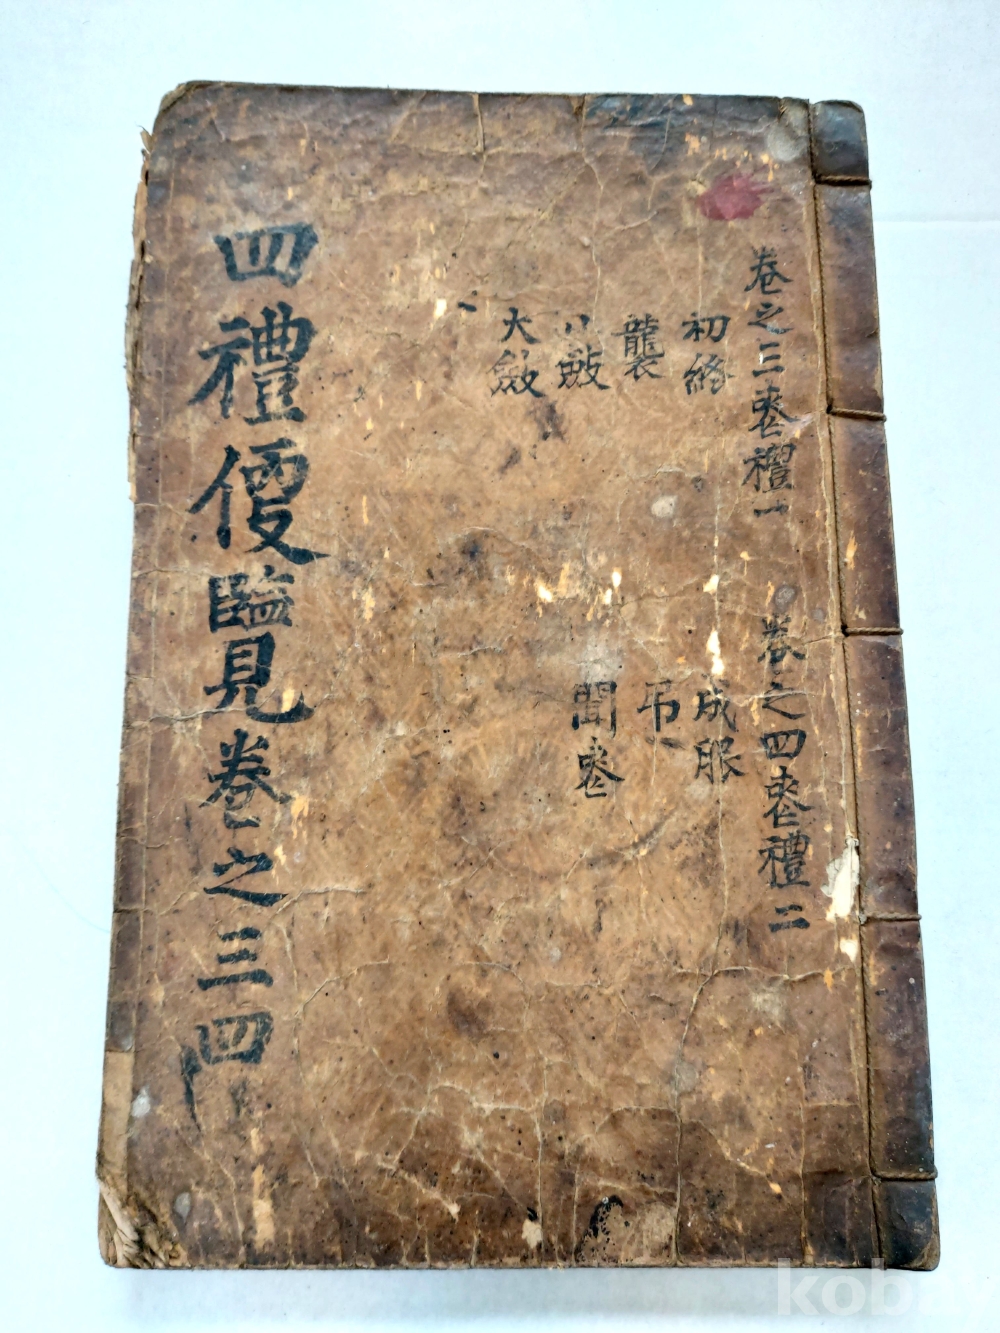 卷之三喪禮一
初終
襲
小斂
大斂
卷之四喪禮二
成服
吊
聞喪
四禮便覽卷之三四
kobay